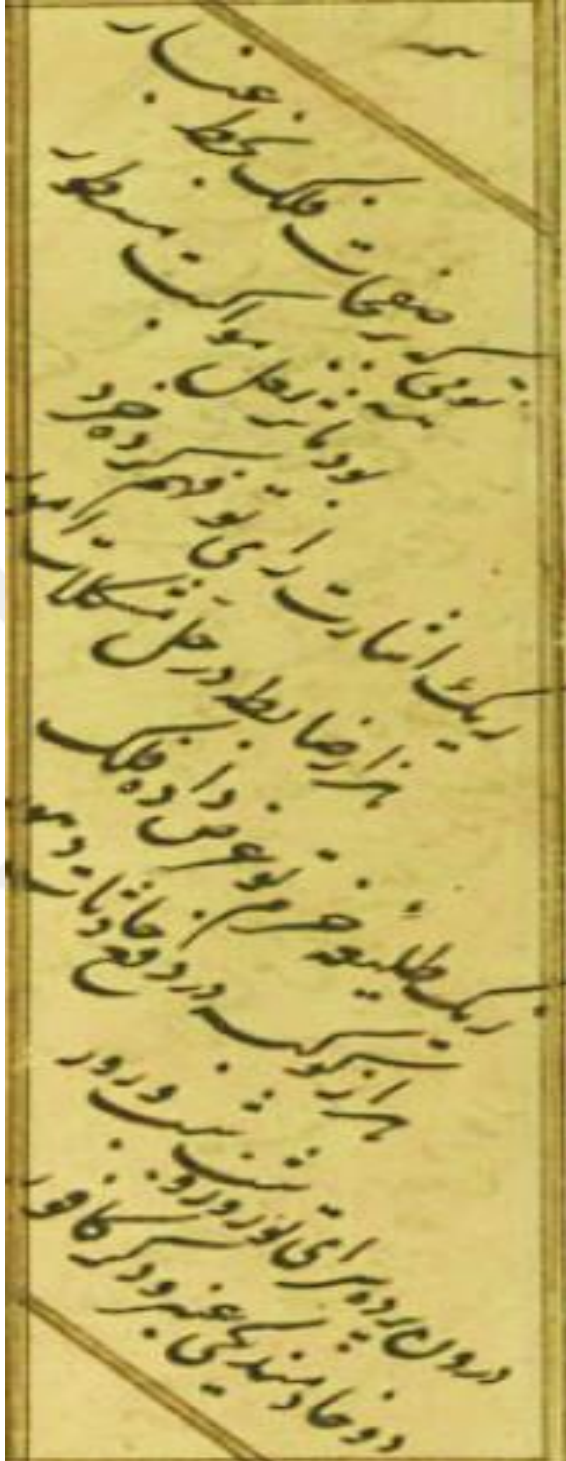 توئی که بر صفحات فلک بخط غبار
همه مآثر نعل مواکبت مسطور
بود
ز یک اشارت رای تو فهم کرده خرد
هزار ضابطه در حل مشکلات امور
ز یک طلیعه حزم تو عرض داده فلک
هزار کوکبه در دفع حادثات دهور
درون پرده سرای تو روز و شب شب و روز
دو خادمند یکی عنبر و دگر کافور